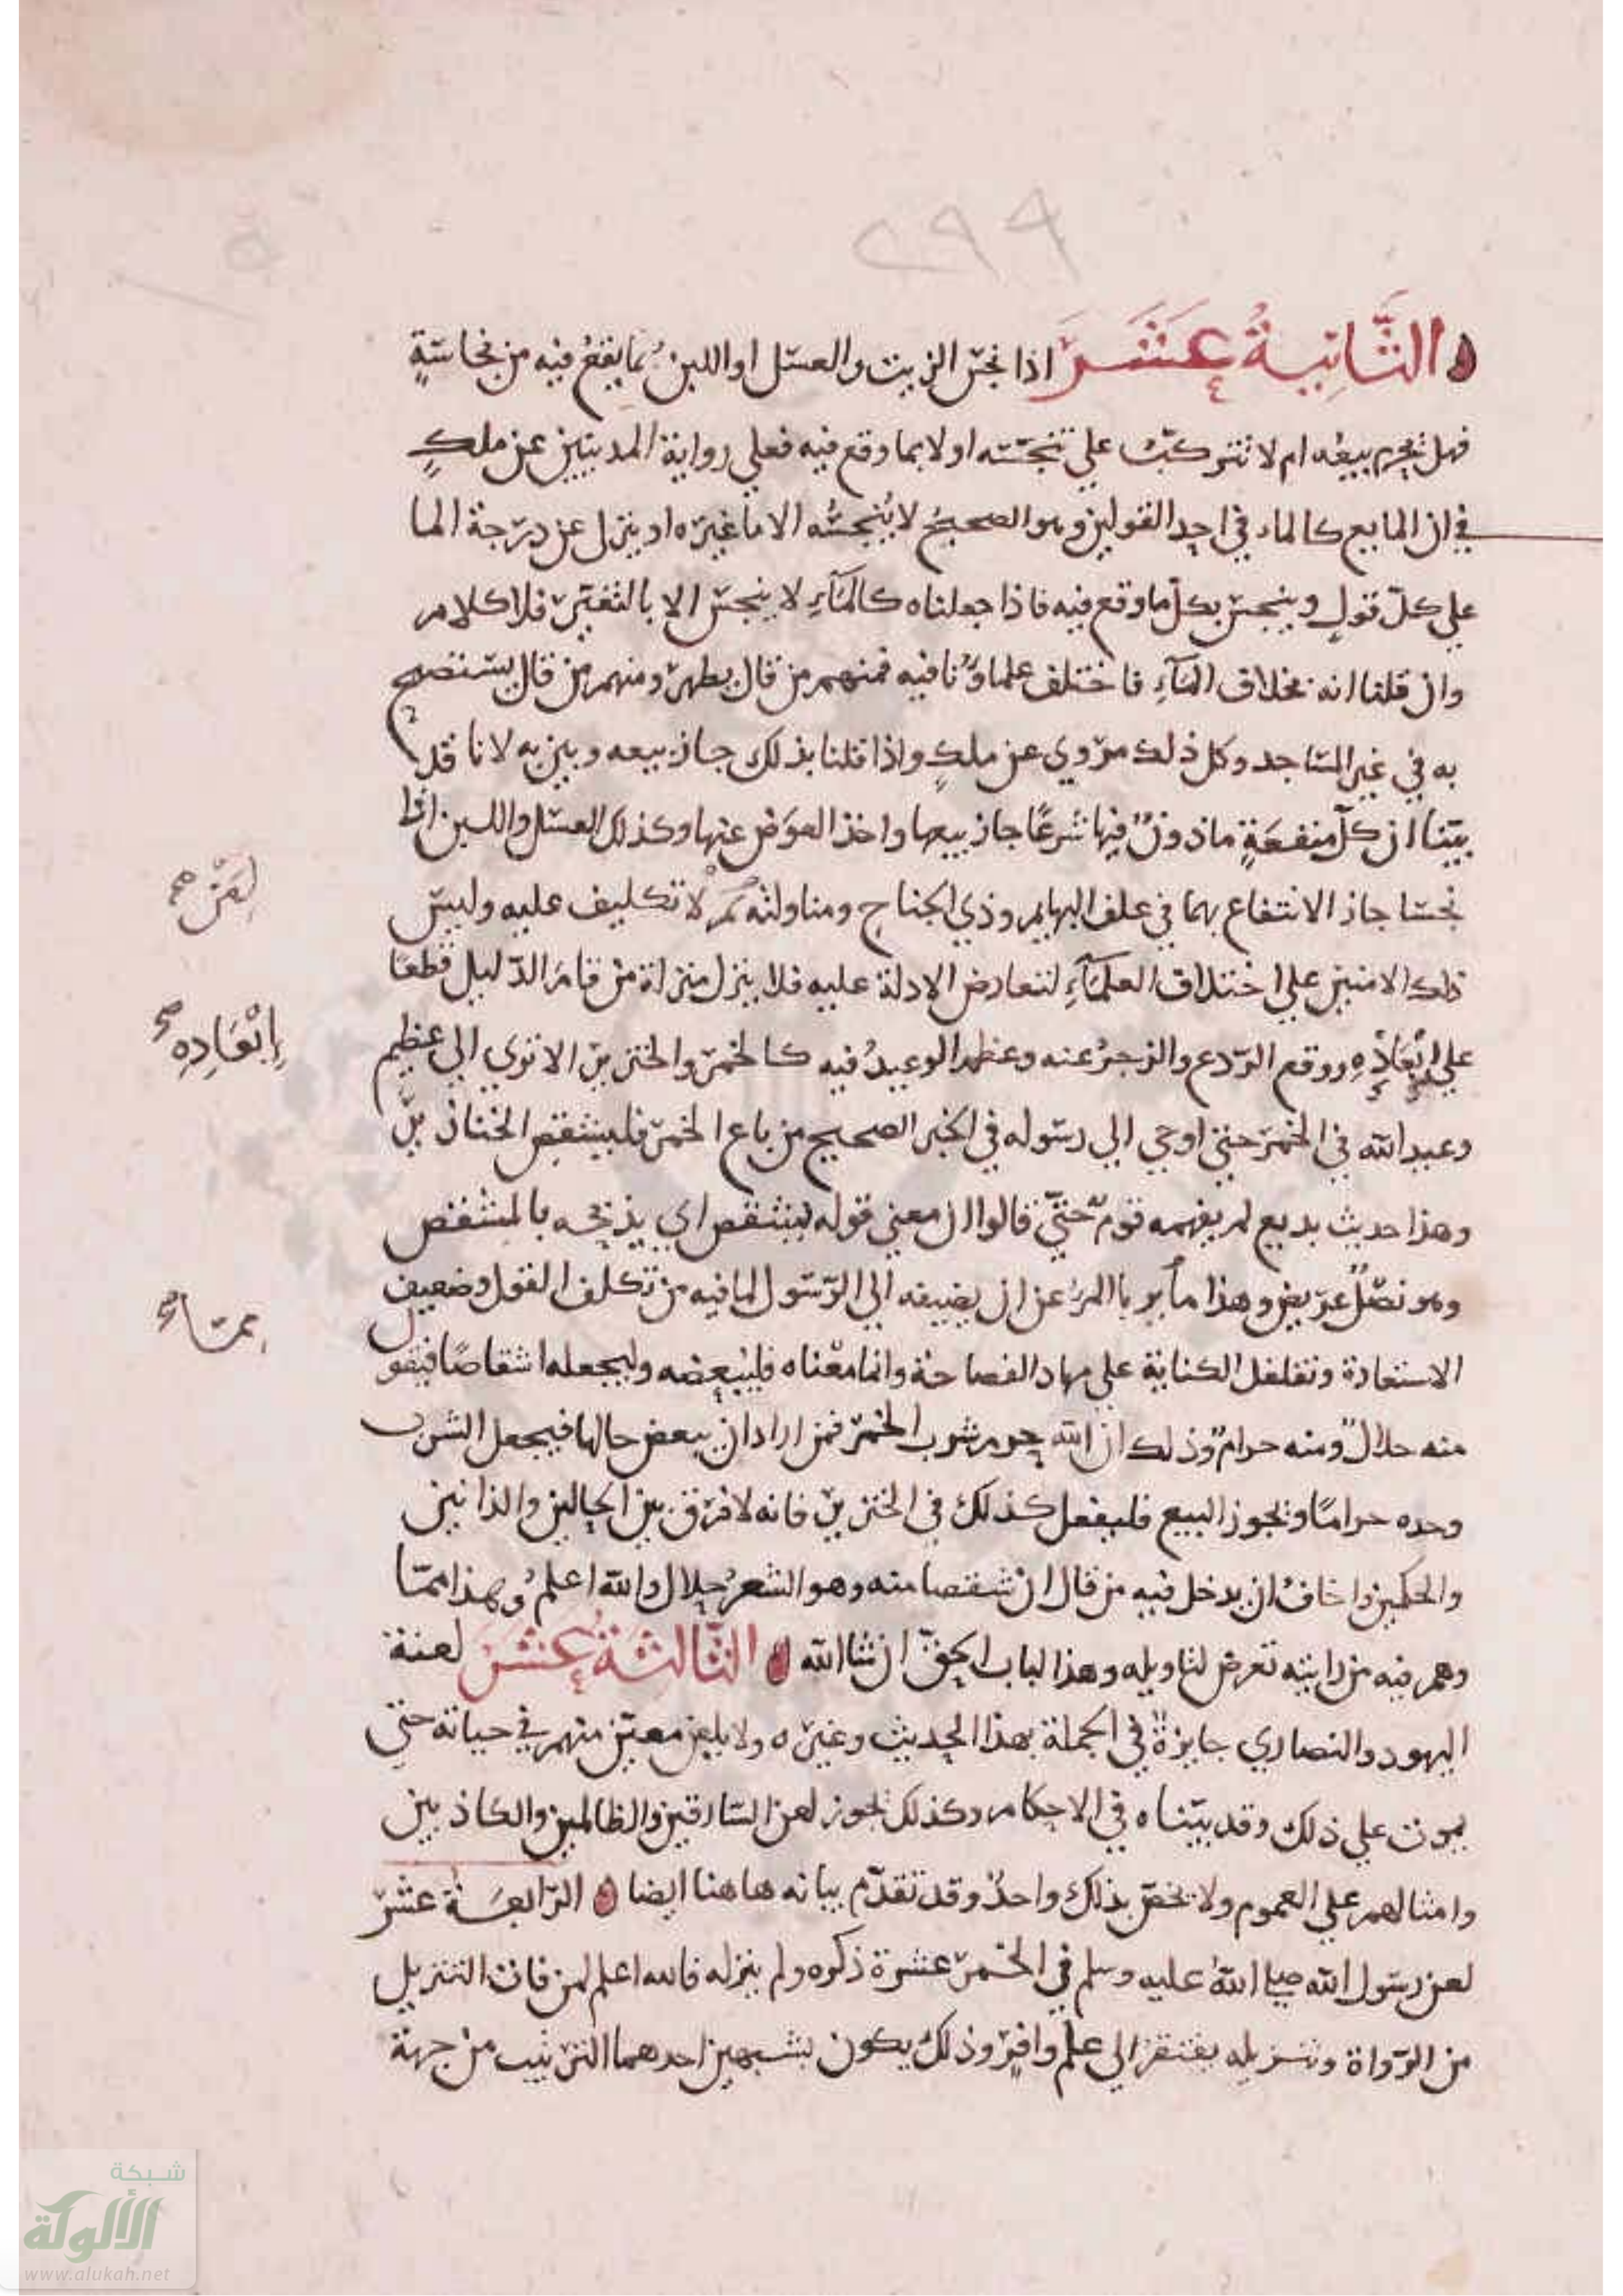 ٢٩٩
الثَّانِيةُ عَشَرَ اذا نجس الزيت والعسل او اللبن بما يقعُ فيه من نجاسةٍ
فهل يحرم بيعُه ام لا تتركبُ علي تنجسه او لا بما وقع فيه فعلي رواية المدنيين عن ملكٍ
في ان المايع كالماء في احد القولين وهو الصحيحُ لا يُنجسُه الا ما غيره او ينزل عن درجة الما
علي كل قولٍ وينجس بكل ما وقع فيه فاذا جعلناه كالمآءِ لا ينجس الا بالتغير فلا كلام
وان قلنا انه بخلاف المآءِ فاختلف علماؤنا فيه فمنهم من قال يطهر ومنهم من قال يستصبح
به في غير المساجد وكل ذلك مروي عن ملكٍ واذا قلنا بذلك جاز بيعه وبين به لانا قد
بينا ان كل منفعةٍ ماذونٌ فيها شرعًا جاز بيعها واخذ العوض عنها وكذلك العسل واللبن اذا
نجسا جاز الانتفاع بهما في علف البهايم وذي الجناح ومناولته لا تكليف عليه وليس
لِمَنْ صح
ذلك الا مبنين علي اختلاف العلمآءِ لتعارض الادلة عليه فلا ينزل منزلة من قام الدليل قطعا
علي ابْعَادِهِ ووقع الردع والزجرُ عنه وعظم الوعيدُ فيه كالخمر والخنزير الا تري الي عظيم
اِبْعَادِهِ صح
وعيد الله في الخمر حتي اوحي الي رسوله في الخبر الصحيح من باع الخمر فليشقص الخنازير
وهذا حديث بديع لم يفهمه قوم حتي قالوا ان معني قوله ليشقص اي يذبحه بالمشقص
وهو نصلٌ عريض وهذا ما يربا المرءُ عن ان يضيفه الي الرسول لما فيه من تكلف القول وضعيف
الاستعارة وتغلغل الكناية علي مهاد الفصاحة وانما معناه فليبعضه وليجعله اشقاصًا فيقول
منه حلالٌ ومنه حرامٌ وذلك ان الله حرم شرب الخمر فمن اراد ان يبعض حالها فيجعل الشرب
وحده حرامًا ويجوز البيع فليفعل كذلك في الخنزير فانه لا فرق بين الحالين والذاتين
والحكمين واخافُ ان يدخل فيه من قال ان شقصا منه وهو الشعرُ حلال والله اعلمُ وهذا مما
وهم فيه من رايته تعرض لتاويله وهذا لباب الحق ان شا الله الثَّالِثَةُ عَشَرَ لعنة
اليهود والنصاري جايزةٌ في الجملة بهذا الحديث وغيره ولا يلعن معين منهم في حياته حتي
يموت علي ذلك وقد بيناه في الاحكام وكذلك يجوز لعن السارقين والظالمين والكاذبين
وامثالهم علي العموم ولا يخص بذلك واحدٌ وقد تقدم بيانه هاهنا ايضا الرابعة عشر
لعن رسول الله صلي الله عليه وسلم في الخمر عشرة ذكره ولم ينزله فالله اعلم لمن فات التنزيل
من الرواة وتنزيله يفتقر الي علم وافرٍ وذلك يكون بشيين احدهما الترتيب من جهة
شبكة
الألوكة
www.alukah.net